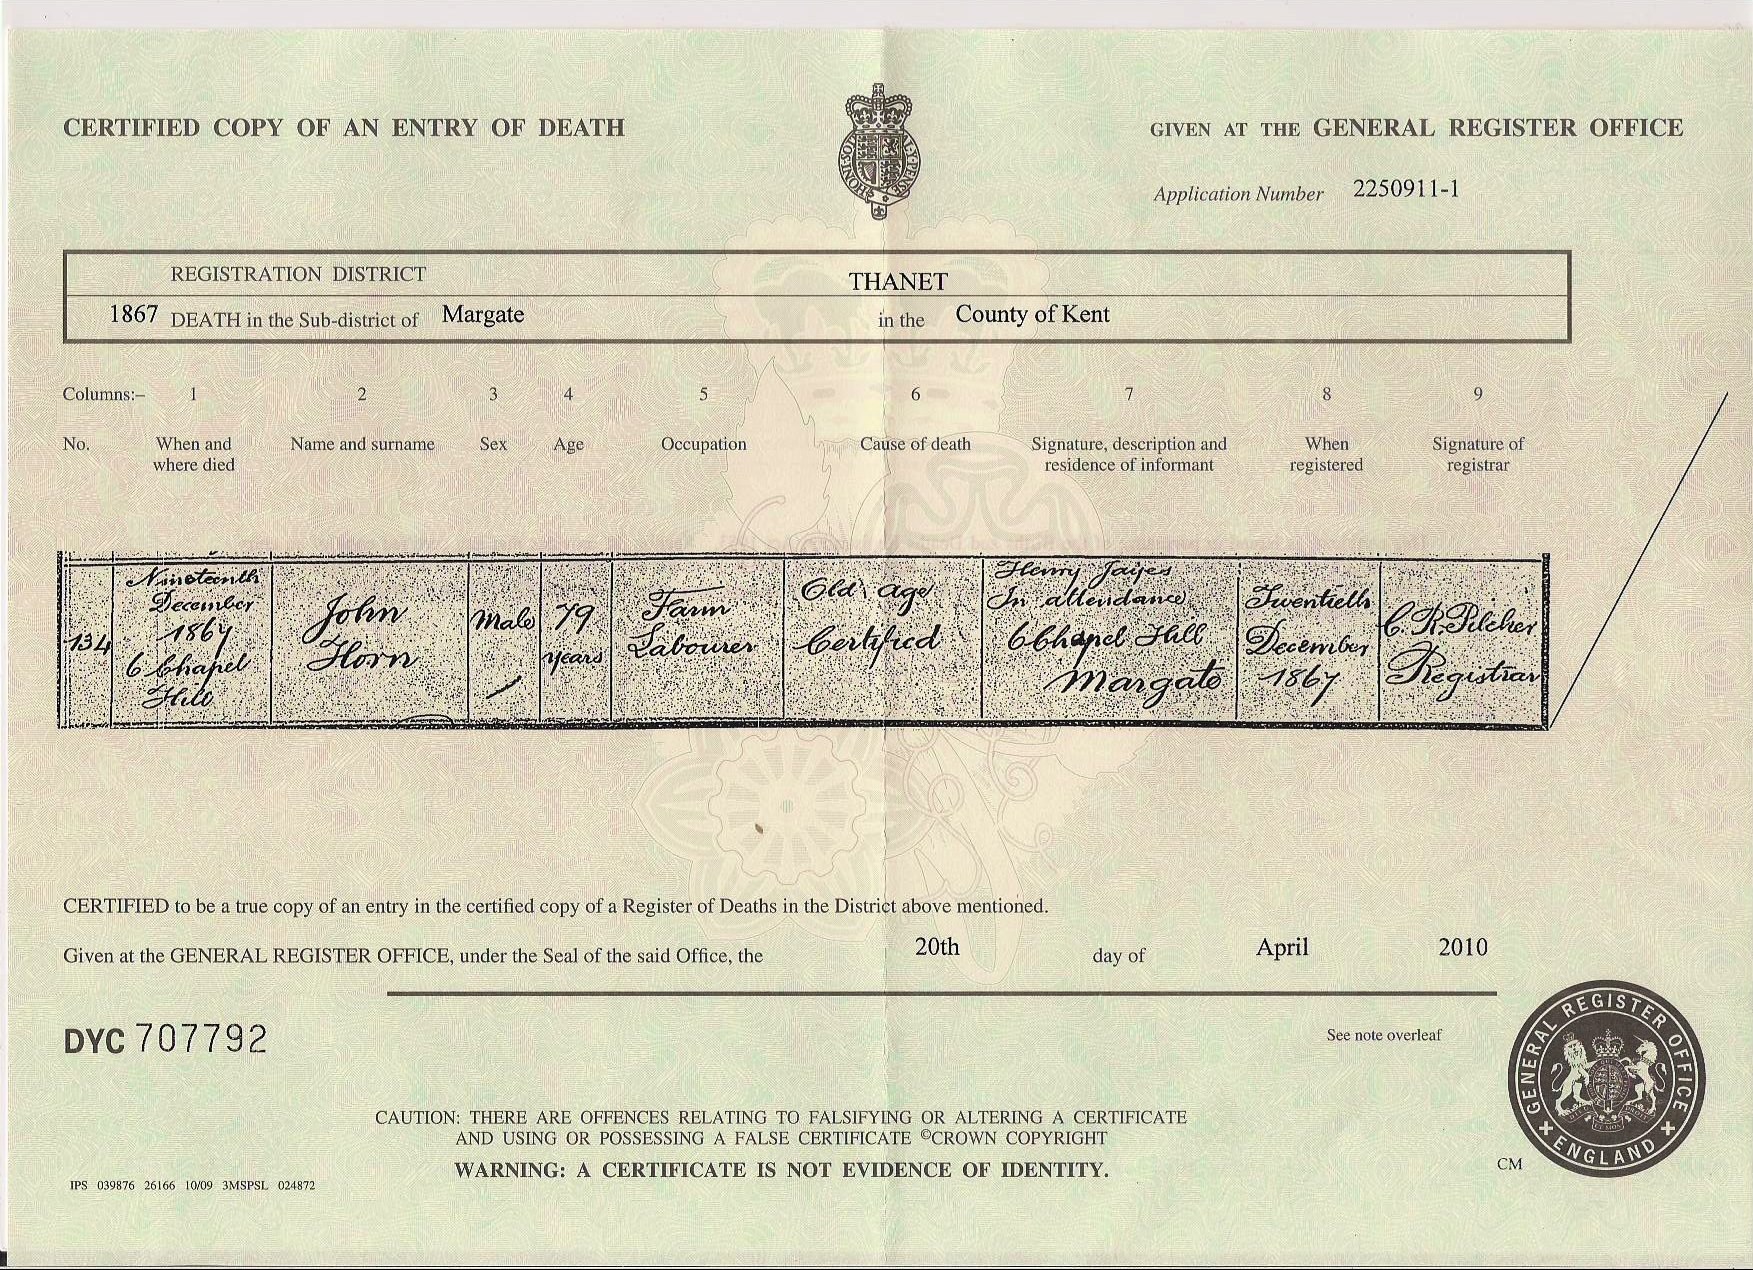 CERTIFIED COPY OF AN ENTRY OF DEATH
GIVEN AT THE GENERAL REGISTER OFFICE
Application Number 2250911-1
REGISTRATION DISTRICT THANET
1867 DEATH in the Sub-district of Margate in the County of Kent
Columns:– 1 2 3 4 5 6 7 8 9
No. When and where died Name and surname Sex Age Occupation Cause of death Signature, description and residence of informant When registered Signature of registrar
134
Nineteenth
December
1867
6 Chapel
Hill
John
Horn
Male
79
years
Farm
Labourer
Old age
Certified
Henry
In attendance
6 Chapel Hill
Margate
Twentieth
December
1867
C. R. Pilcher
Registrar
CERTIFIED to be a true copy of an entry in the certified copy of a Register of Deaths in the District above mentioned.
Given at the GENERAL REGISTER OFFICE, under the Seal of the said Office, the 20th day of April 2010
DYC 707792
See note overleaf
GENERAL REGISTER OFFICE
ENGLAND
CAUTION: THERE ARE OFFENCES RELATING TO FALSIFYING OR ALTERING A CERTIFICATE
AND USING OR POSSESSING A FALSE CERTIFICATE ©CROWN COPYRIGHT
WARNING: A CERTIFICATE IS NOT EVIDENCE OF IDENTITY.
CM
IPS 039876 26166 10/09 3MSPSL 024872